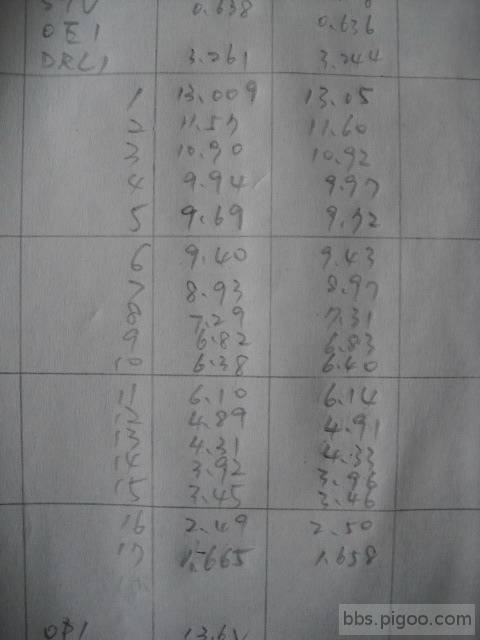 STV 0.638
OE1 0.636
DRL1 3.261 3.244
1 13.009 13.05
2 11.57 11.60
3 10.90 10.92
4 9.94 9.97
5 9.69 9.72
6 9.40 9.43
7 8.93 8.97
8 7.29 7.31
9 6.82 6.83
10 6.38 6.40
11 6.10 6.14
12 4.89 4.91
13 4.31 4.33
14 3.92 3.96
15 3.45 3.46
16 2.49 2.50
17 1.665 1.658
13.6V
bbs.pigoo.com